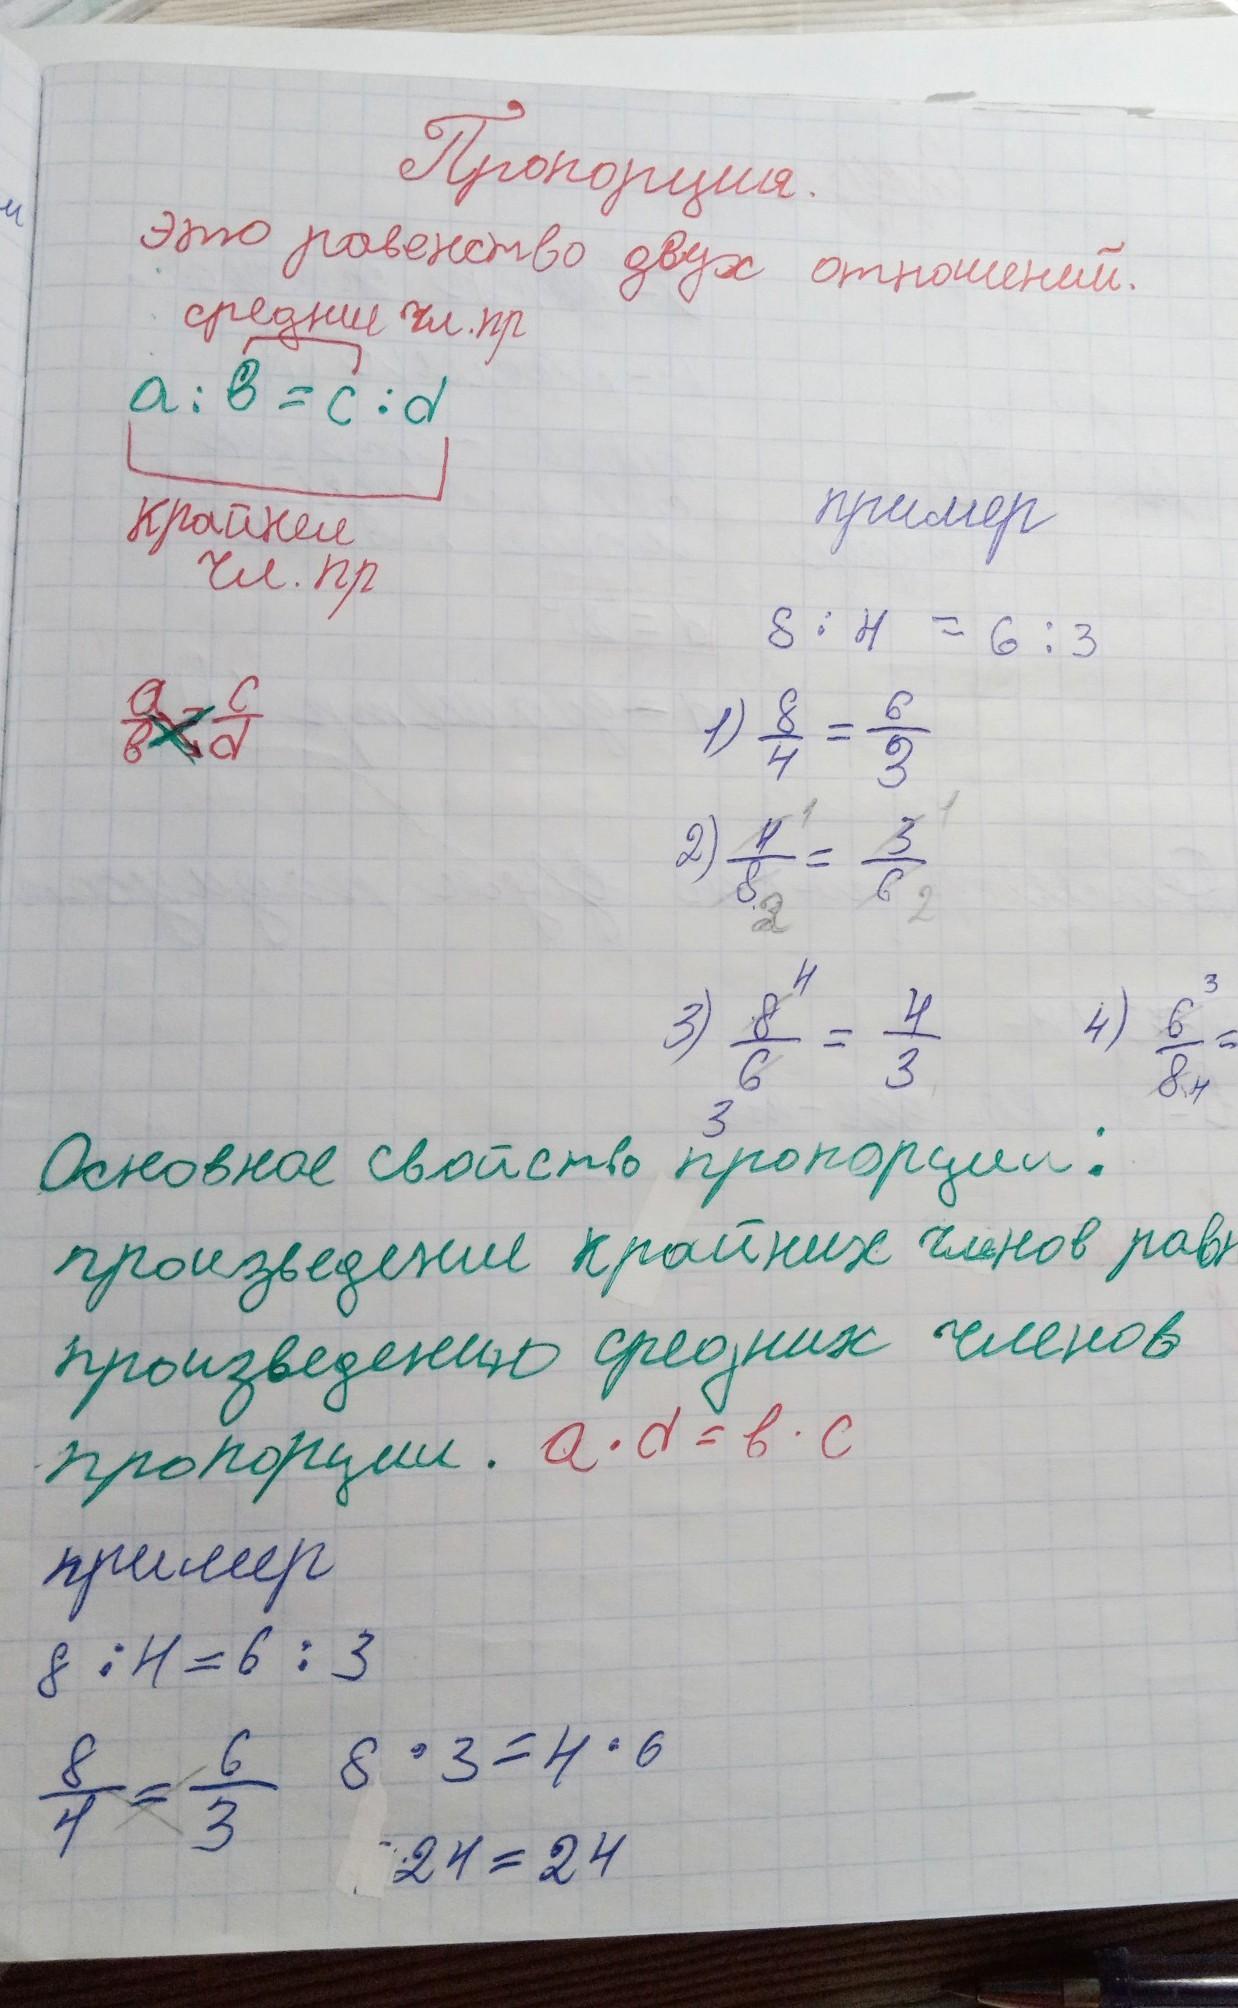 Пропорция.
это равенство двух отношений.
средние чл. пр
a : в = c : d
крайние
чл. пр
пример
8 : 4 = 6 : 3
a/в = c/d
1) 8/4 = 6/3
2) 4/8 = 3/6
1 1
2 2
3) 8/6 = 4/3 4) 6/8 =
4 3
3 4
Основное свойство пропорции:
произведение крайних членов равн
произведению средних членов
пропорции. a · d = в · c
пример
8 : 4 = 6 : 3
8/4 = 6/3 8 · 3 = 4 · 6
24 = 24